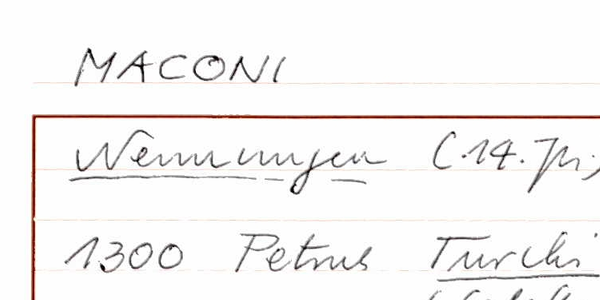 MACONI
Nennungen (.14. Jh.)
1300 Petrus Turchi